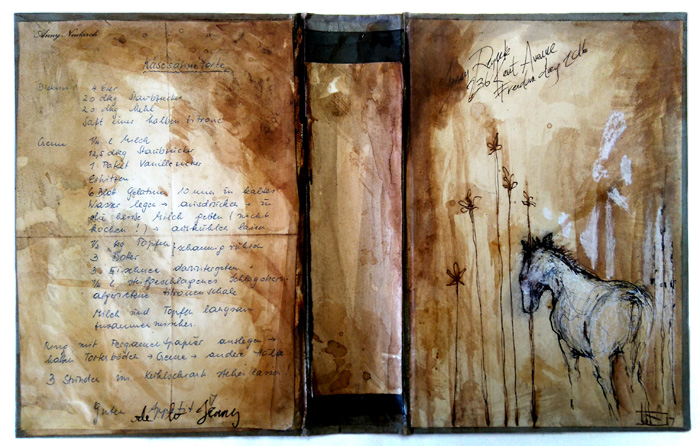 Anny
Käsesahnetorte
4 Eier
20 dkg Staubzucker
20 dkg Mehl
Saft einer halben Zitrone
Creme ¼ l Milch
12,5 dkg Staubzucker
1 Paket Vanillezucker
erhitzen
6 Blatt Gelatine 10 min in kaltes
Wasser legen → ausdrücken → in
die heisse Milch geben (nicht
kochen!) → auskühlen lassen
½ kg Topfen
3 Dotter
schaumig rühren
3 Eischnee daruntergeben
¼ l steifgeschlagenes Schlagobers
abgeriebene Zitronenschale
Milch und Topfen langsam
zusammenmischen
Ring mit Pergamentpapier auslegen →
halben Tortenboden → Creme → andere Hälfte
3 Stunden im Kühlschrank stehen lassen
Guten Appetit
Jenny
236 East
2016